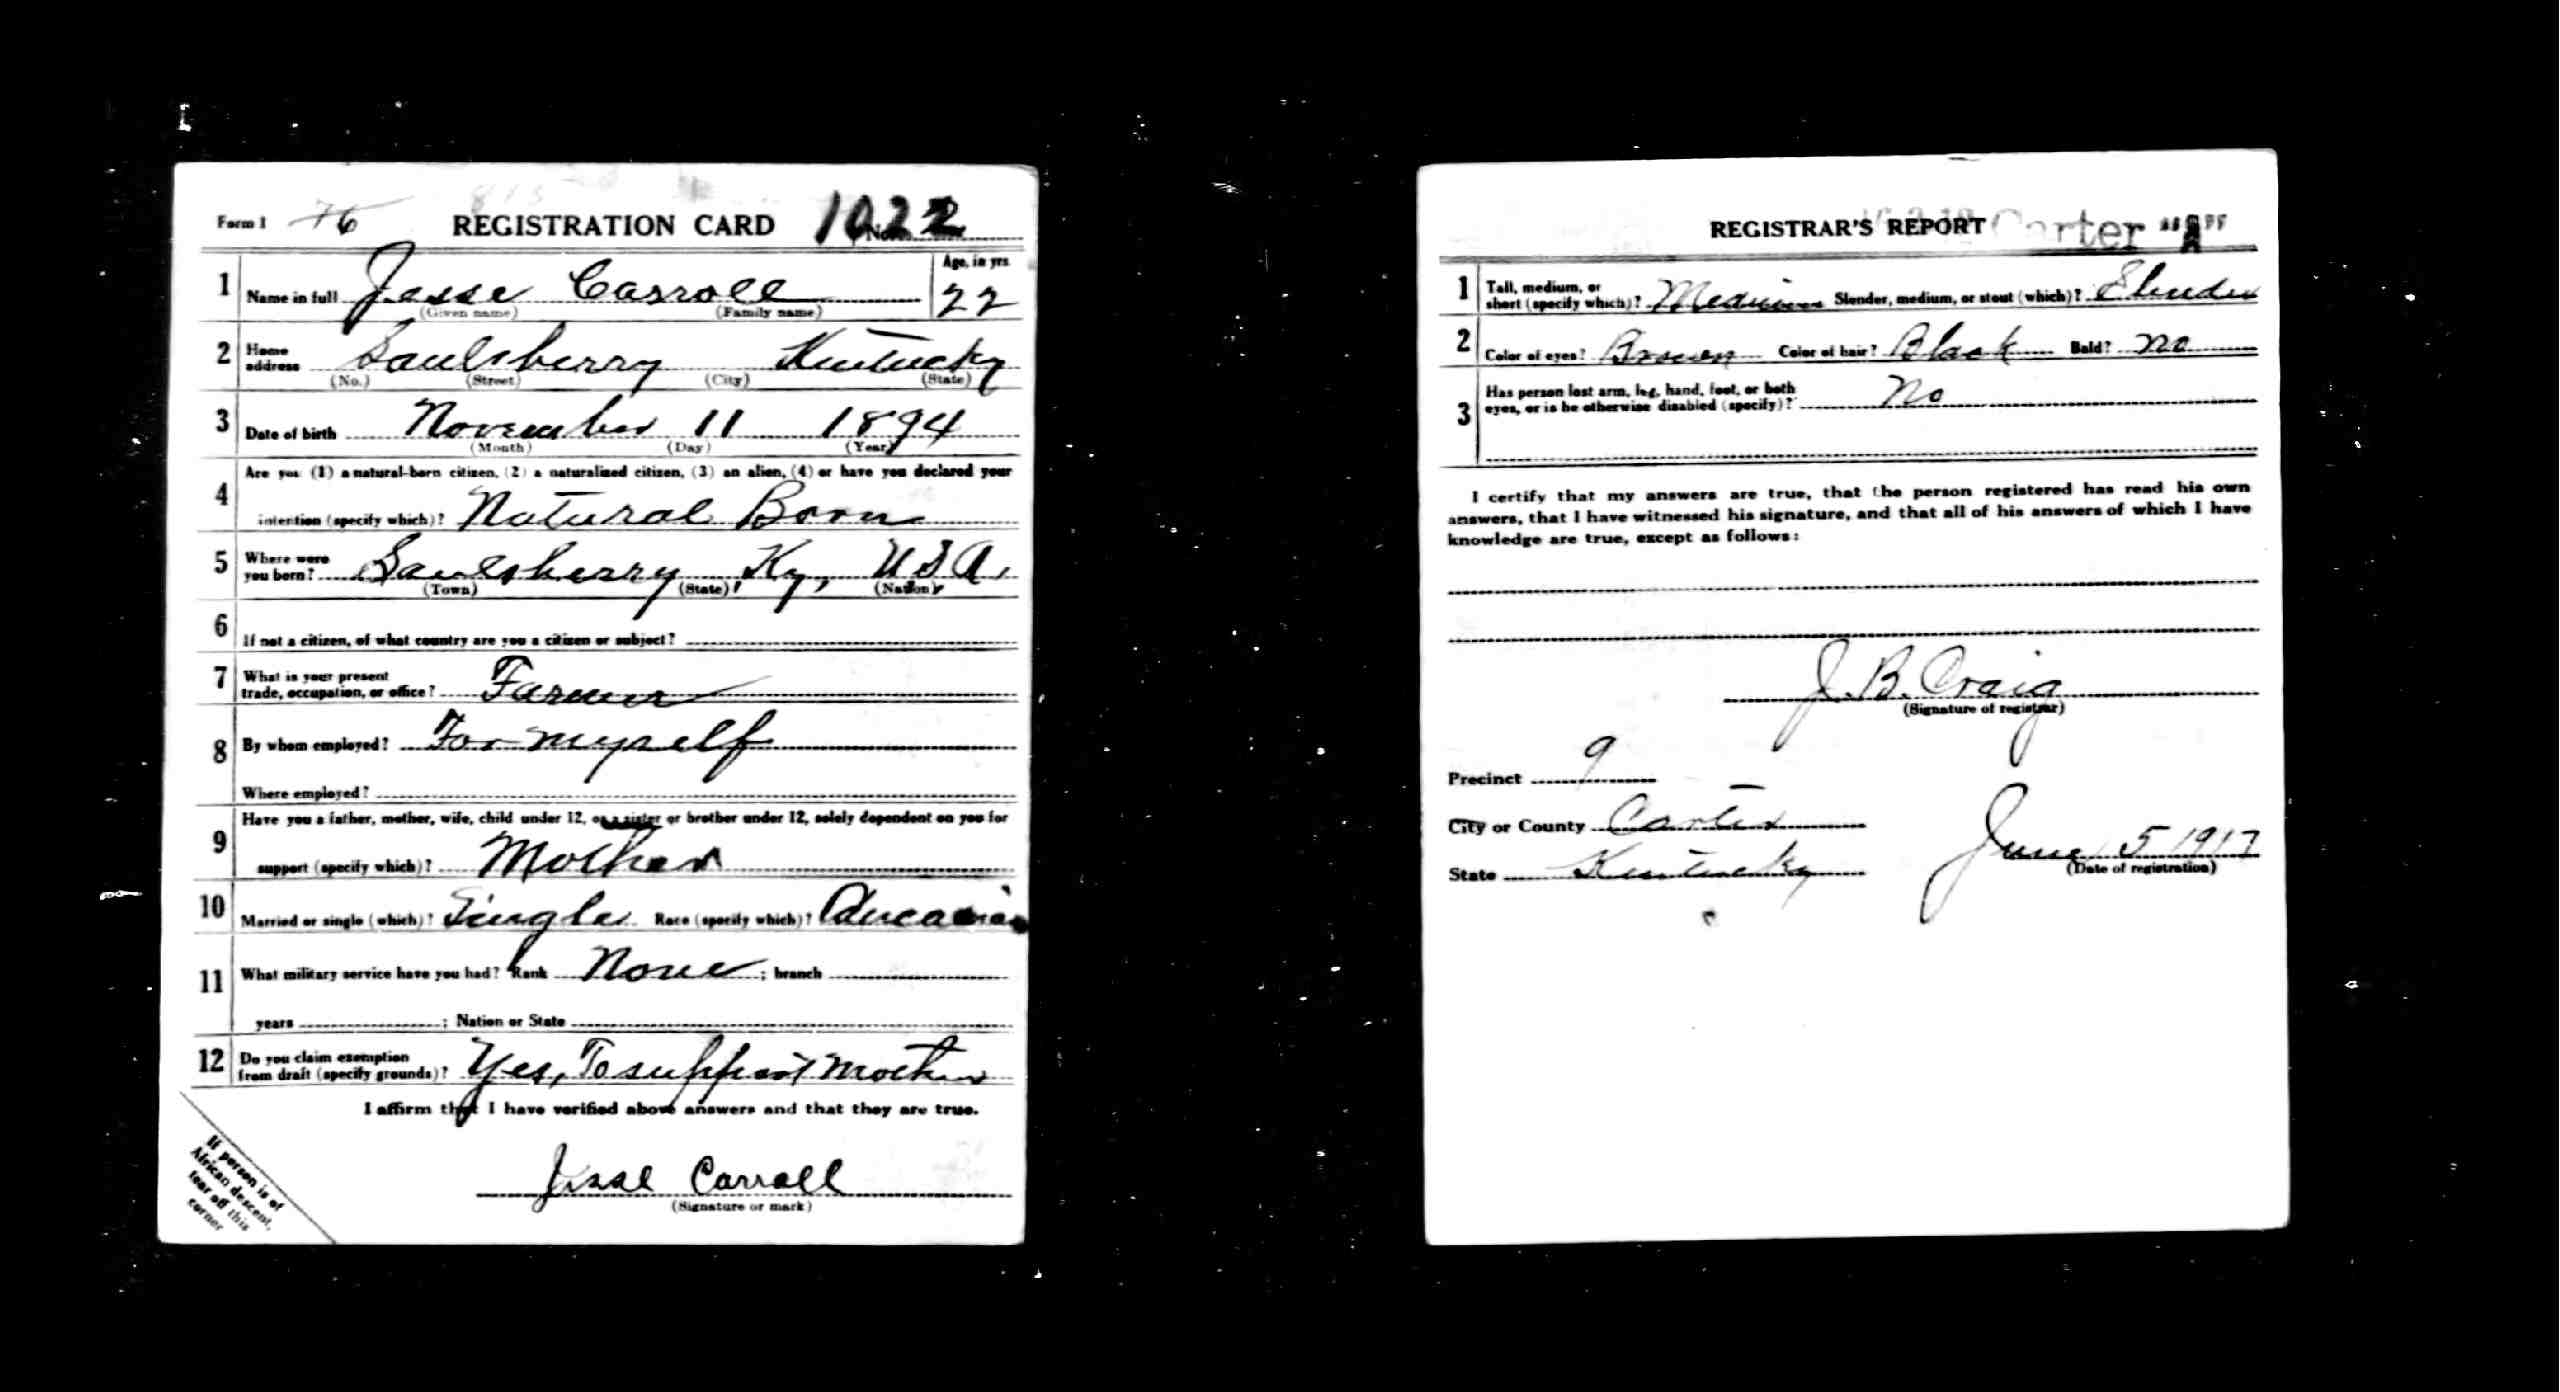 Form 1 76 REGISTRATION CARD No. 1022
1 Name in full Jesse Carroll Age, in yrs 22
(Given name) (Family name)
2 Home address Saulsberry Kentucky
(No.) (Street) (City) (State)
3 Date of birth November 11 1894
(Month) (Day) (Year)
4 Are you (1) a natural-born citizen, (2) a naturalized citizen, (3) an alien, (4) or have you declared your
intention (specify which)? Natural Born
5 Where were you born? Saulsberry, Ky, USA.
(Town) (State) (Nation)
6 If not a citizen, of what country are you a citizen or subject?
7 What is your present
trade, occupation, or office? Farmer
8 By whom employed? For myself
Where employed?
9 Have you a father, mother, wife, child under 12, or a sister or brother under 12, solely dependent on you for
support (specify which)? Mother
10 Married or single (which)? Single Race (specify which)?
11 What military service have you had? Rank None ; branch
years ; Nation or State
12 Do you claim exemption
from draft (specify grounds)? Yes, To support Mother
I affirm that I have verified above answers and that they are true.
Jesse Carroll
(Signature or mark)
If person is of
African descent,
tear off this
corner
REGISTRAR'S REPORT Carter
1 Tall, medium, or
short (specify which)? Medium Slender, medium, or stout (which)? Slender
2 Color of eyes? Brown Color of hair? Black Bald? no
3 Has person lost arm, leg, hand, foot, or both
eyes, or is he otherwise disabled (specify)? No
I certify that my answers are true, that the person registered has read his own
answers, that I have witnessed his signature, and that all of his answers of which I have
knowledge are true, except as follows:
J. B. Craig
(Signature of registrar)
Precinct 9
City or County Carter
State Kentucky June 5 1917
(Date of registration)